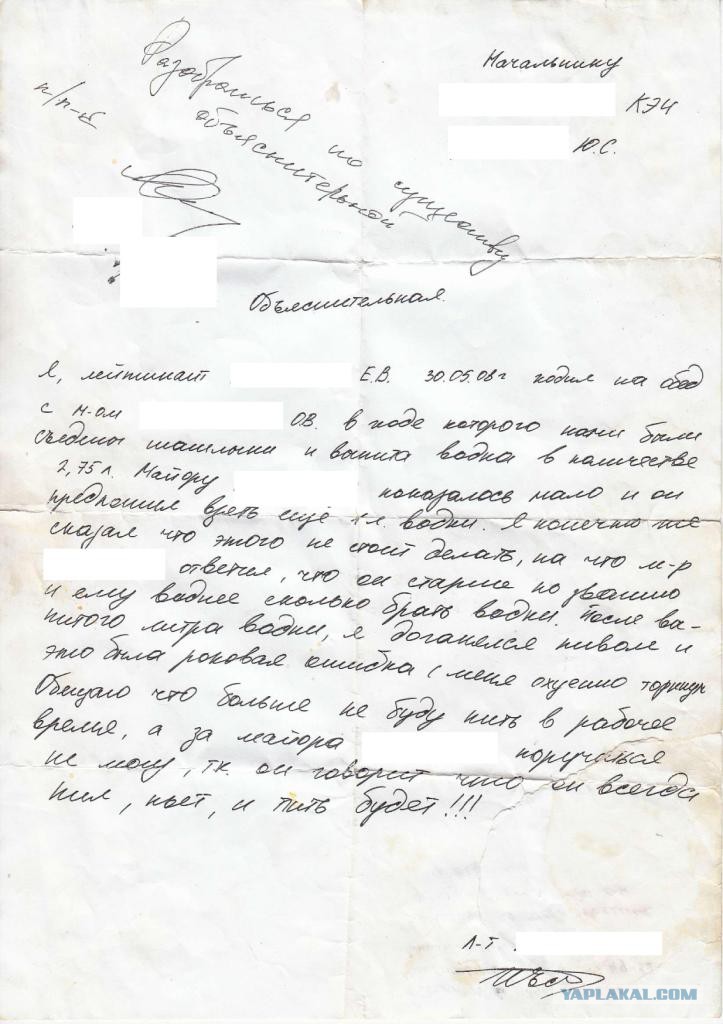 Начальнику
КЭЧ
Ю.С.
п/п-к
Разобраться по существу
объяснительной
Объяснительная.
Я, лейтинант Е.В. 30.05.08г ходил на обед
с м-ом О.В. в ходе которого нами были
съедены шашлыки и выпита водка в количестве
2,75 л. Майору показалось мало и он
предложил взять ещё л. водки. Я конечно же
сказал что этого не стоит делать, на что м-р
ответил, что он старше по званию
и ему виднее сколько брать водки. После вы-
питого литра водки, я догонялся пивом и
это была роковая ошибка (меня охуенно торкнул
Обещаю что больше не буду пить в рабочее
время, а за майора поручиться
не могу, т.к. он говорит что он всегда
пил, пьет, и пить будет!!!
Л-т
YAPLAKAL.COM